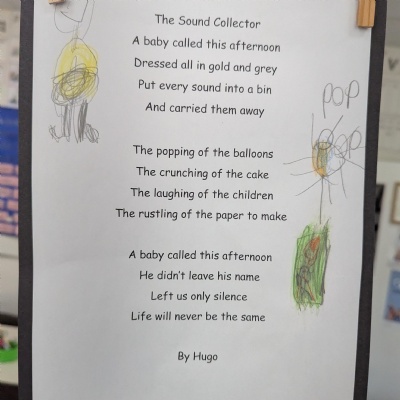 The Sound Collector
A baby called this afternoon
Dressed all in gold and grey
Put every sound into a bin
And carried them away
POP
POP
The popping of the balloons
The crunching of the cake
The laughing of the children
The rustling of the paper to make
A baby called this afternoon
He didn't leave his name
Left us only silence
Life will never be the same
By Hugo